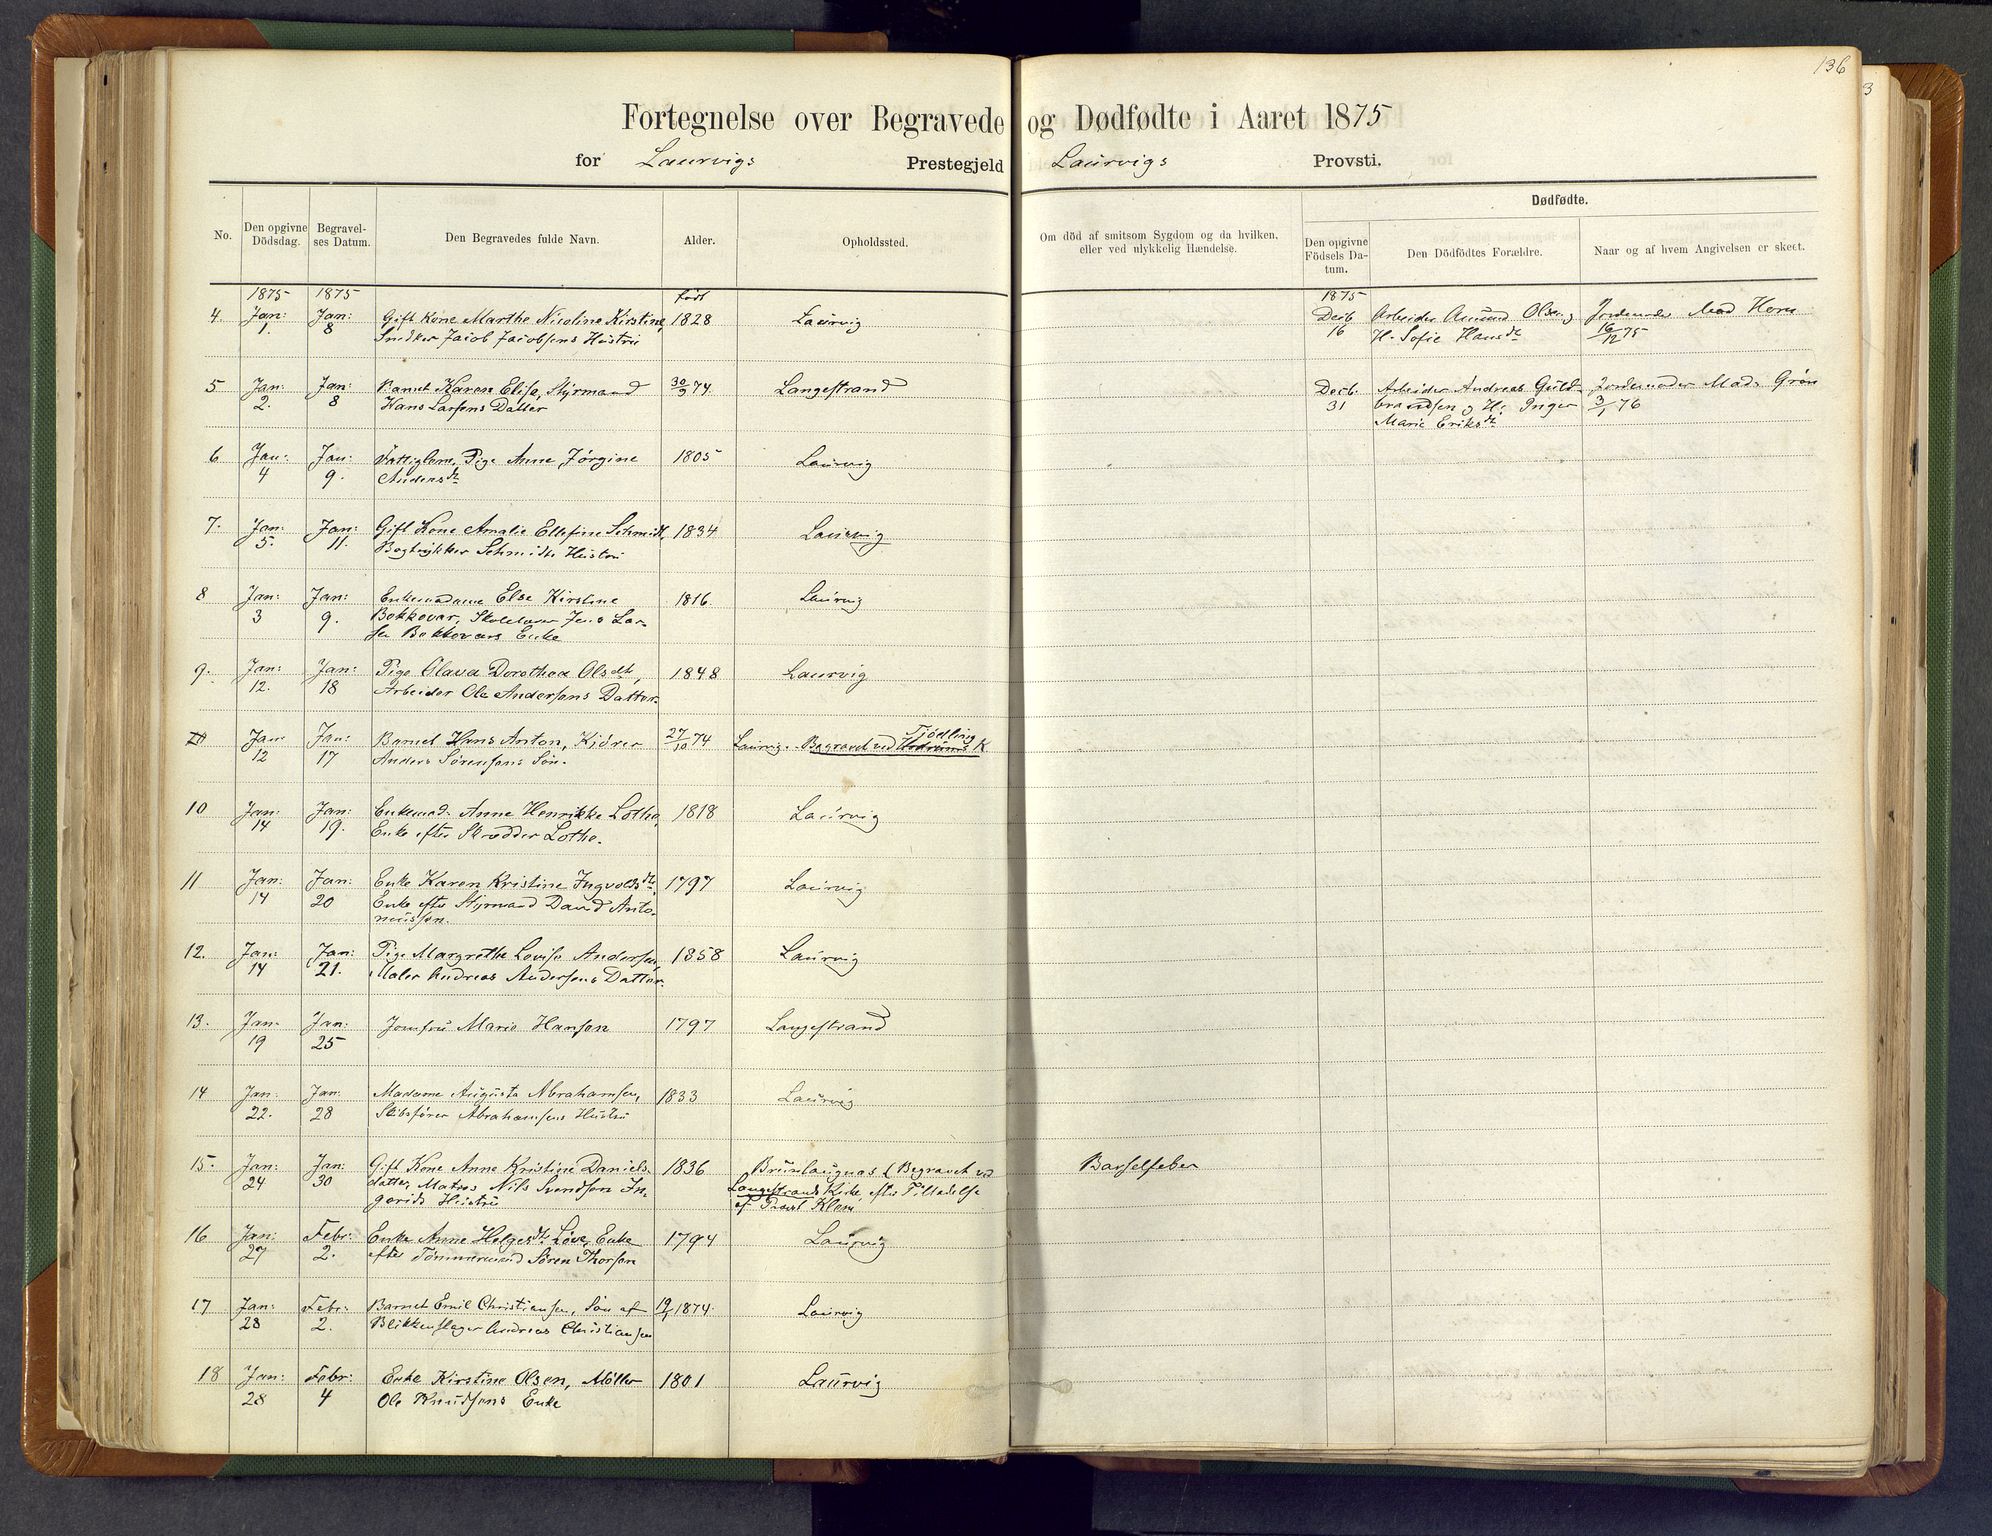 136
3
Fortegnelse over Begravede og Dødfødte i Aaret 1875
for Laurvigs Prestegjeld Laurvigs Provsti.
No.
Den opgivne Dödsdag.
Begravelses Datum.
Den Begravedes fulde Navn.
Alder.
Opholdssted.
Om död af smitsom Sygdom og da hvilken,
eller ved ulykkelig Hændelse.
Dødfødte.
Den opgivne Födsels Datum.
Den Dödfödtes Forældre.
Naar og af hvem Angivelsen er skeet.
1875 1875 født 1875
4. Jan: 1 Jan: 8 Gift Kone Marthe Nicoline Kirstine, 1828 Laurvig
Snedker Jacob Jacobsens Hustru
Decb 16 Arbeider Amund Olsen og Jordemoder Mad Horn
H. Sofie Hansdt 16/12 75
5 Jan: 2. Jan: 8 Barnet Karen Elise, Styrmand 30/9 74 Langestrand
Hans Larsens Datter
Decb. 31 Arbeider Andreas Guld- Jordemoder Mad. Grøn
brandsen og H. Inger 3/1 76
Marie Eriksdt
6 Jan: 4 Jan: 9. Fattiglem, Pige Anne Jørgine 1805 Laurvig
Andersdt
7. Jan: 5. Jan: 11. Gift Kone Amalie Ellefine Schmidt, 1834 Laurvig
Bogtrykker Schmidts Hustru
8 Jan: 3 Jan: 9. Enkemadame Else Kirstine 1816. Laurvig
Bokkovar, Skolelærer Jens Lar-
sen Bokkovars Enke
9. Jan: 12. Jan: 18 Pige Olava Dorothea Olsdt, 1848 Laurvig
Arbeider Ole Andersens Datter.
Jan: 12 Jan: 17 Barnet Hans Anton, Kjører 27/10 74 Laurvig. Begravet ved Tjödling K
Anders Sørensens Søn.
10 Jan: 14 Jan: 19. Enkemad. Anne Henrikke Lothe, 1818 Laurvig
Enke efter Skrædder Lothe.
11 Jan: 14 Jan: 20 Enke Karen Kristine Ingvoldsdt, 1797 Laurvig
Enke efter Styrmand David Anto-
niussen.
12. Jan: 14 Jan: 21. Pige Margrethe Lovise Andersen, 1858 Laurvig
Maler Andreas Andersens Datter.
13. Jan. 19 Jan: 25 Jomfru Marie Hansen 1797 Langestrand
14 Jan. 22. Jan. 28 Madame Augusta Abrahamsen, 1833 Laurvig
Skibsfører Abrahamsens Hustru
15. Jan: 24 Jan: 30 Gift Kone Anne Kristine Daniels- 1836 Brunlaugnæs (Begravet ved Barselfeber
datter, Matros Nils Svendsen In- Langestrands Kirke, efter Tilladelse
gerids Hustru af Provst Klem
16 Jan: 27 Febr: 2. Enke Anne Helgesdt Løve, Enke 1794 Laurvig
efter Tømmermand Søren Thorsen
17 Jan: 28 Febr: 2. Barnet Emil Christiansen, Søn af 19/1 1874. Laurvig
Blikkenslager Andreas Christiansen
18 Jan: 28 Febr: 4 Enke Kirstine Olsen, Møller 1801 Laurvig
Ole Knudsens Enke